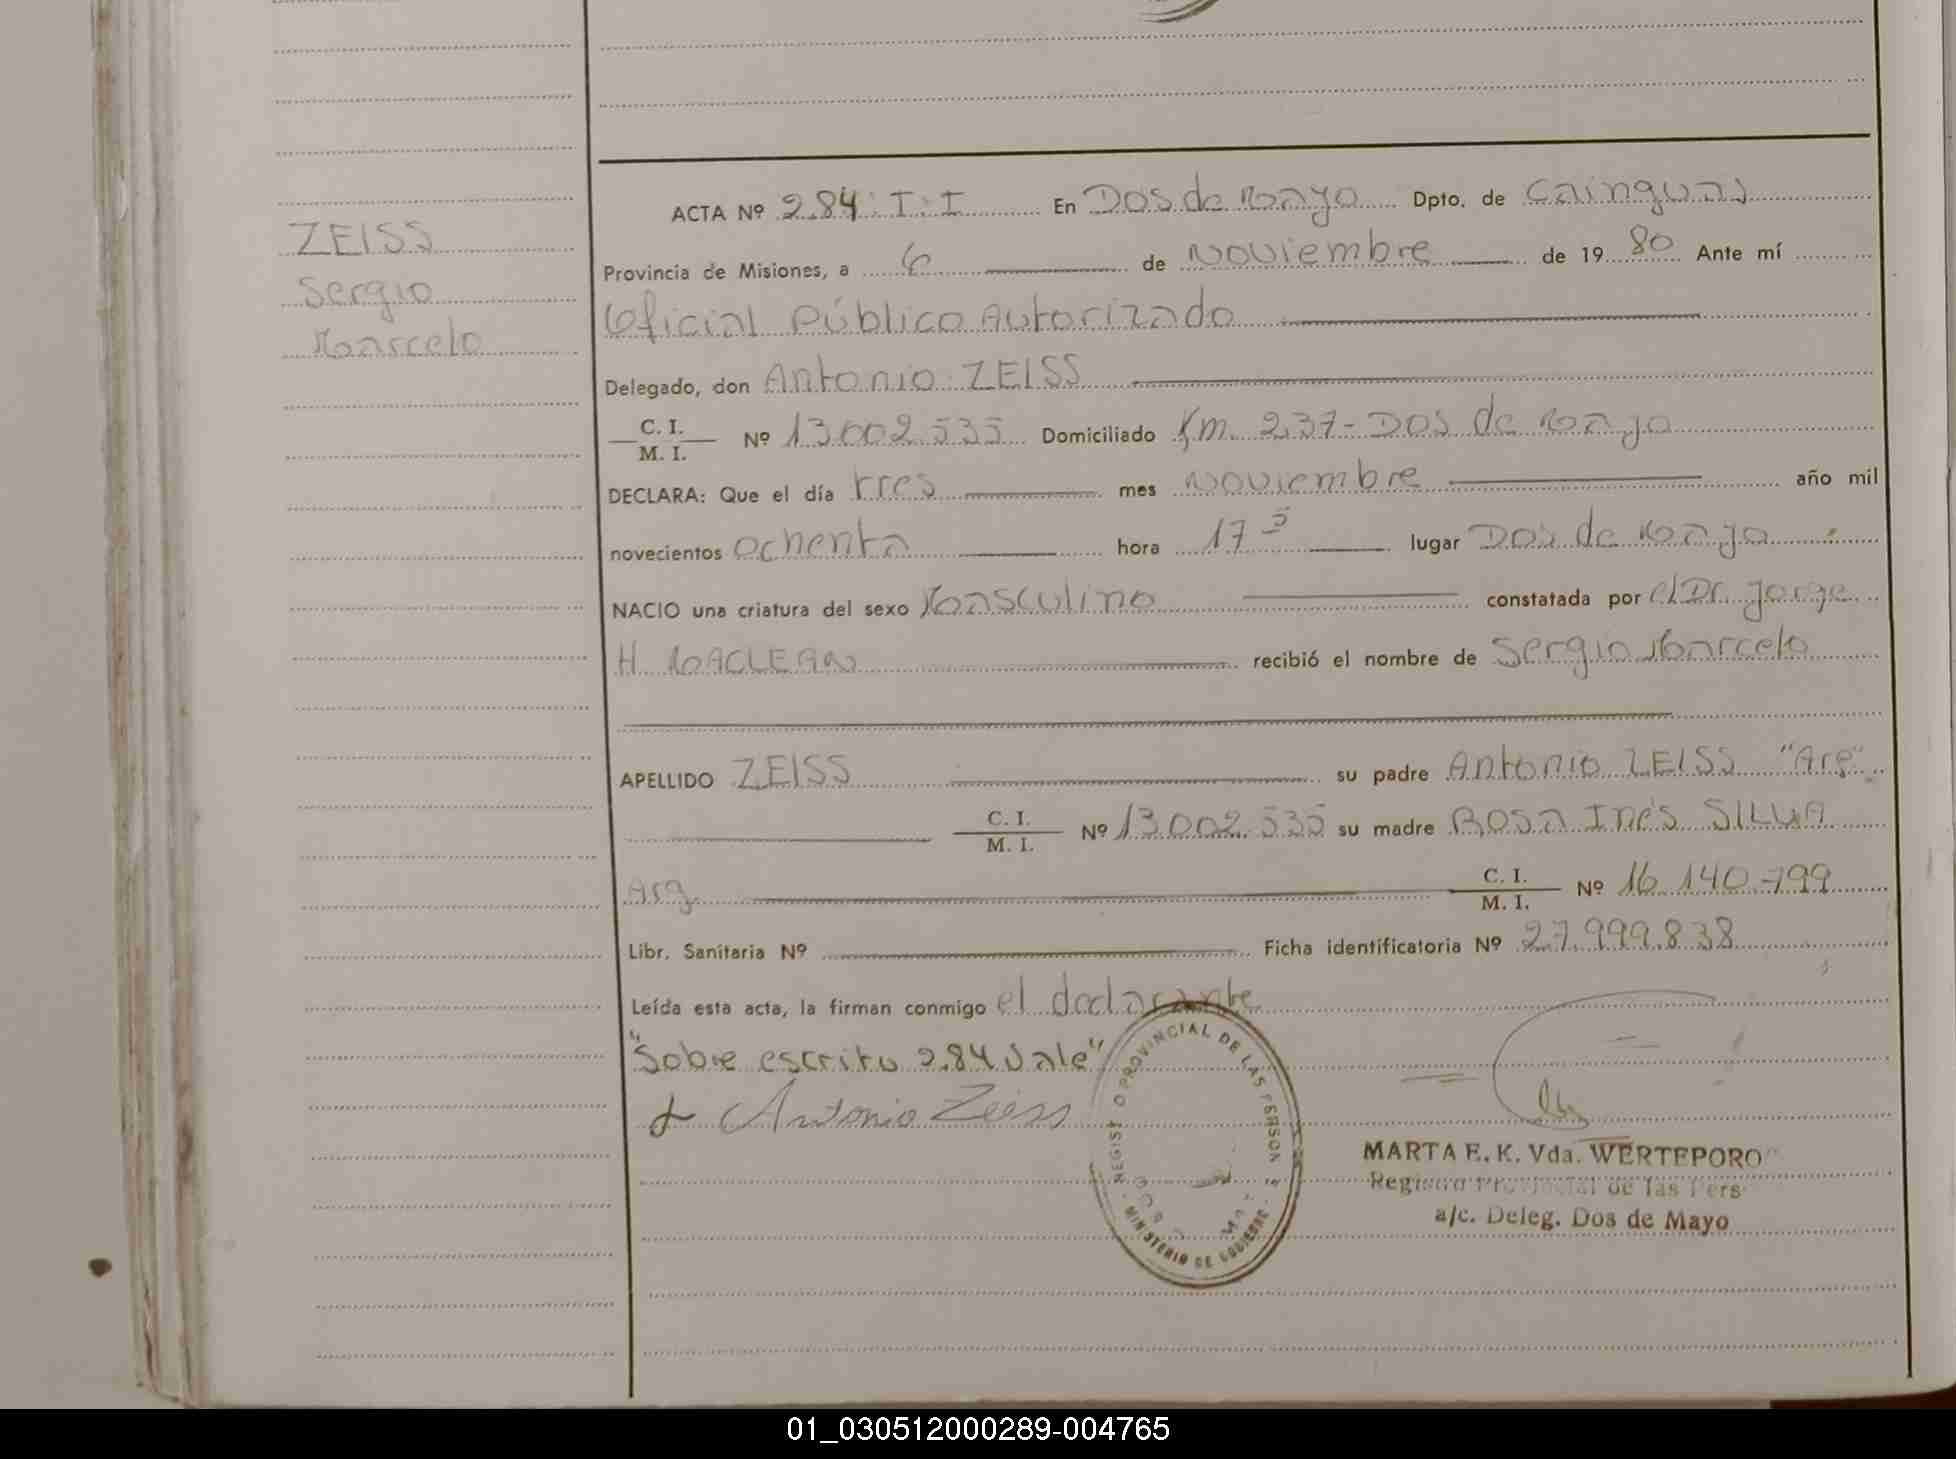 ZEISS
Sergio
Marcelo
ACTA Nº 284 T: I En Dos de Mayo Dpto. de Cainguas
Provincia de Misiones, a 6 de Noviembre de 1980 Ante mí
Oficial Público Autorizado
Delegado, don Antonio ZEISS
C. I.
M. I. Nº 13.002.535 Domiciliado Km. 237 - Dos de Mayo
DECLARA: Que el día tres mes Noviembre año mil
novecientos ochenta hora 17 5 lugar Dos de Mayo
NACIO una criatura del sexo Masculino constatada por el Dr. Jorge
H. MACLEAN recibió el nombre de Sergio Marcelo
APELLIDO ZEISS su padre Antonio ZEISS "Arg"
C. I.
M. I. Nº 13.002.535 su madre Rosa Inés SILVA
Arg. C. I.
M. I. Nº 16.140.799
Libr. Sanitaria Nº Ficha identificatoria Nº 27.999.838
Leída esta acta, la firman conmigo el declarante
"Sobre escrito 284 Vale"
Antonio Zeiss
PROVINCIAL DE LAS PERSON
MINISTERIO DE GOBIERNO
MARTA E. K. Vda. WERTEPORO
Registro Provincial de las Pers
a/c. Deleg. Dos de Mayo
01_030512000289-004765